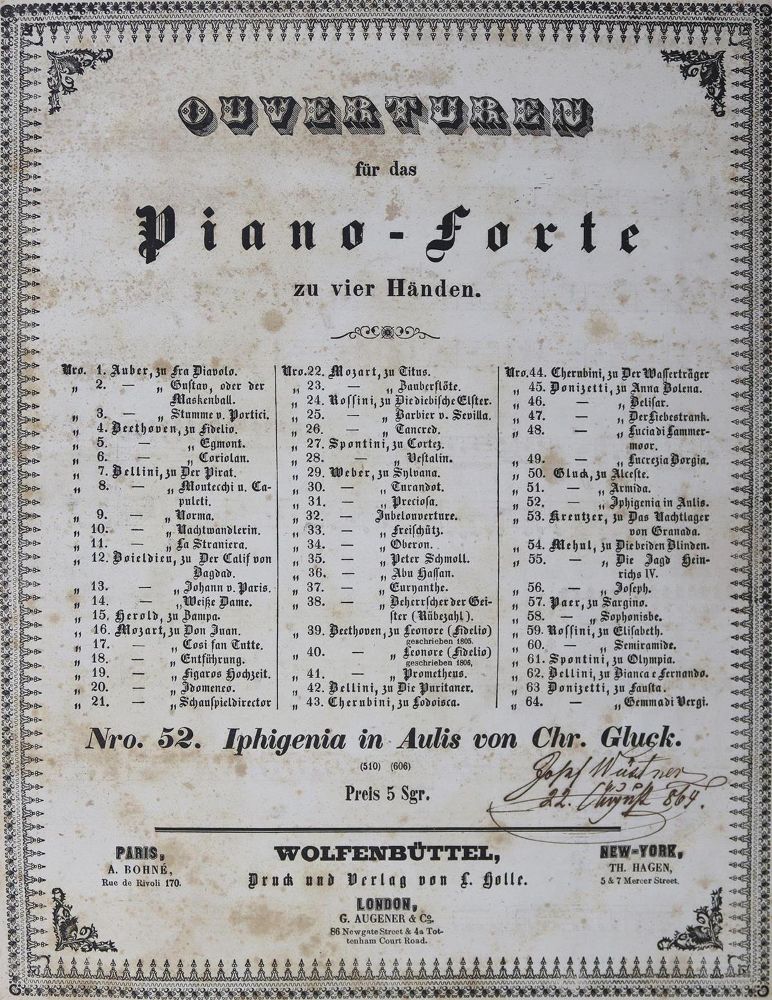 OUVERTUREN
für das
Piano-Forte
zu vier Händen.
Nro. 1. Auber, zu Fra Diavolo.
„ 2. — „ Gustav, oder der
Maskenball.
„ 3. — „ Stumme v. Portici.
„ 4. Beethoven, zu Fidelio.
„ 5. — „ Egmont.
„ 6. — „ Coriolan.
„ 7. Bellini, zu Der Pirat.
„ 8. — „ Montecchi u. Ca-
puleti.
„ 9. — „ Norma.
„ 10. — „ Nachtwandlerin.
„ 11. — „ La Straniera.
„ 12. Boieldieu, zu Der Calif von
Bagdad.
„ 13. — „ Johann v. Paris.
„ 14. — „ Weiße Dame.
„ 15. Herold, zu Zampa.
„ 16. Mozart, zu Don Juan.
„ 17. — „ Cosi fan Tutte.
„ 18. — „ Entführung.
„ 19. — „ Figaros Hochzeit.
„ 20. — „ Idomeneo.
„ 21. — „ Schauspieldirector
Nro. 22. Mozart, zu Titus.
„ 23. — „ Zauberflöte.
„ 24. Rossini, zu Die diebische Elster.
„ 25. — „ Barbier v. Sevilla.
„ 26. — „ Tancred.
„ 27. Spontini, zu Cortez.
„ 28. — „ Vestalin.
„ 29. Weber, zu Sylvana.
„ 30. — „ Turandot.
„ 31. — „ Preciosa.
„ 32. — Jubelouverture.
„ 33. — „ Freischütz.
„ 34. — „ Oberon.
„ 35. — „ Peter Schmoll.
„ 36. — „ Abu Hassan.
„ 37. — „ Euryanthe.
„ 38. — „ Beherrscher der Gei-
ster (Rübezahl).
„ 39. Beethoven, zu Leonore (Fidelio)
geschrieben 1805.
„ 40. — „ Leonore (Fidelio)
geschrieben 1806.
„ 41. — „ Prometheus.
„ 42. Bellini, zu Die Puritaner.
„ 43. Cherubini, zu Lodoisca.
Nro. 44. Cherubini, zu Der Wasserträger
„ 45. Donizetti, zu Anna Bolena.
„ 46. — „ Belisar.
„ 47. — „ Der Liebestrank.
„ 48. — „ Lucia di Lammer-
moor.
„ 49. — „ Lucrezia Borgia.
„ 50. Gluck, zu Alceste.
„ 51. — „ Armida.
„ 52. — „ Iphigenia in Aulis.
„ 53. Kreutzer, zu Das Nachtlager
von Granada.
„ 54. Mehul, zu Die beiden Blinden.
„ 55. — „ Die Jagd Hein-
richs IV.
„ 56. — „ Joseph.
„ 57. Paer, zu Sargino.
„ 58. — „ Sophonisbe.
„ 59. Rossini, zu Elisabeth.
„ 60. — „ Semiramide.
„ 61. Spontini, zu Olympia.
„ 62. Bellini, zu Bianca e Fernando.
„ 63 Donizetti, zu Fausta.
„ 64. — „ Gemma di Vergi.
Nro. 52. Iphigenia in Aulis von Chr. Gluck.
(510) (606)
Preis 5 Sgr.
Josef Wüstner
22. August 864.
PARIS,
A. BOHNÉ,
Rue de Rivoli 170.
WOLFENBÜTTEL,
Druck und Verlag von L. Holle.
LONDON,
G. AUGENER & Co.
86 Newgate Street & 4a Tot-
tenham Court Road.
NEW-YORK,
TH. HAGEN,
5 & 7 Mercer Street.